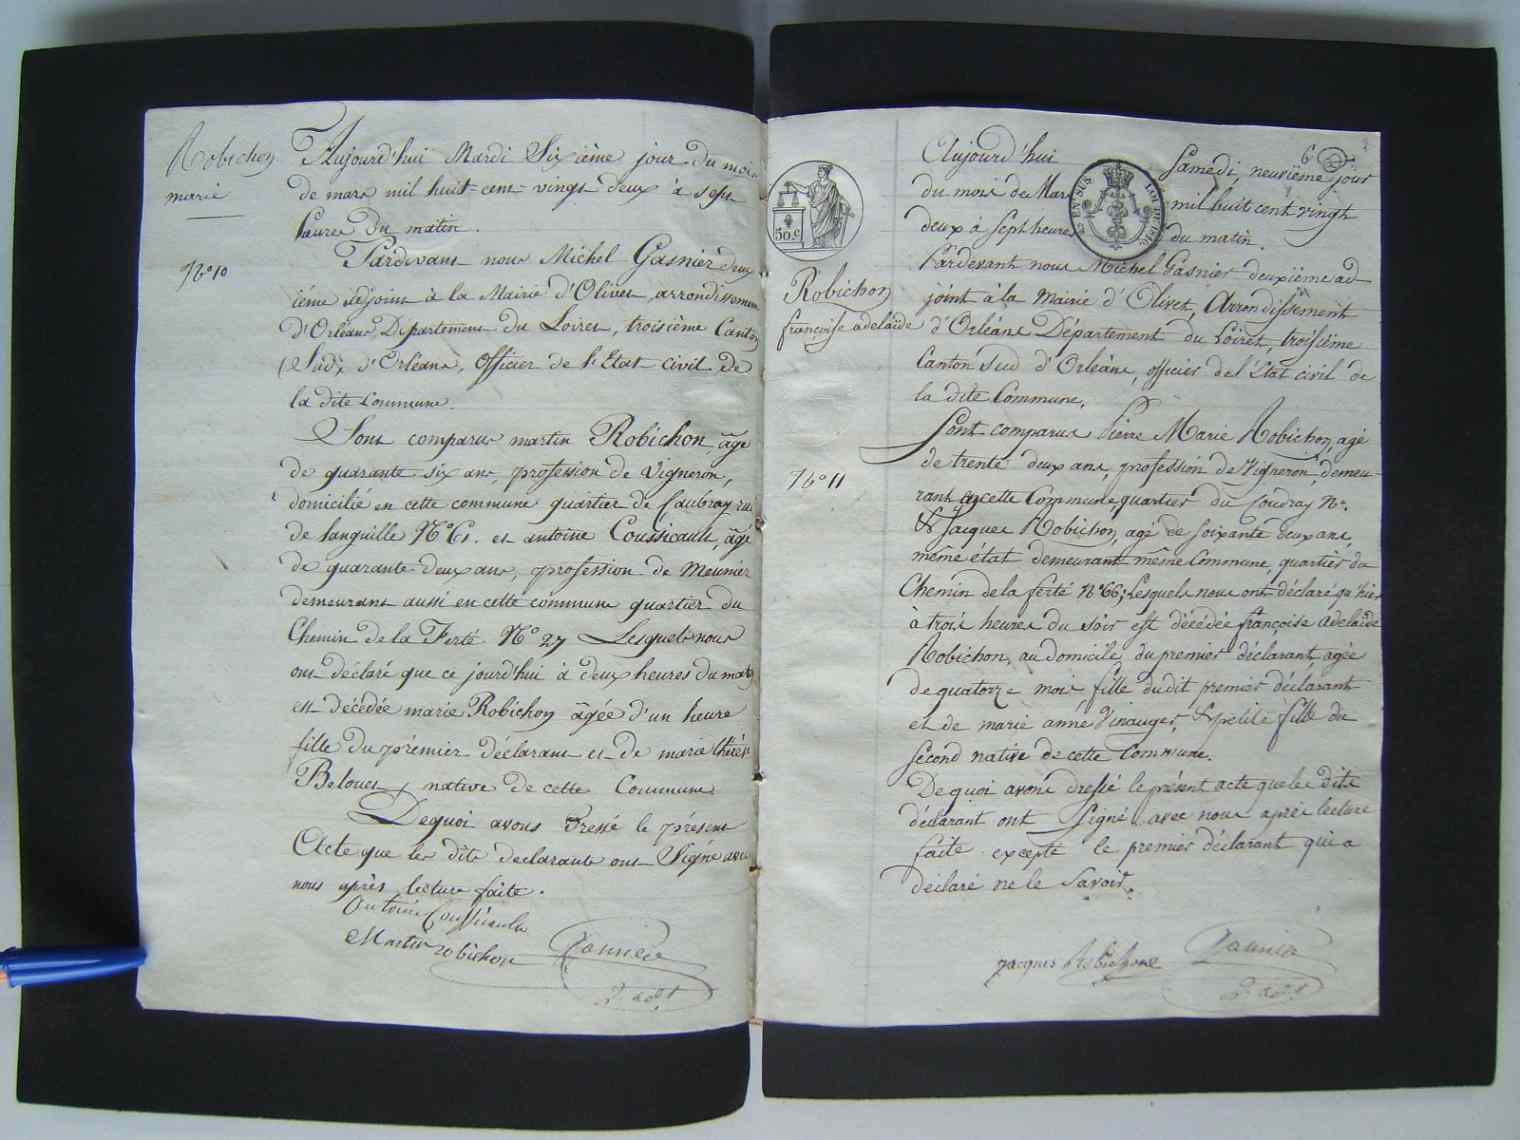 Robichon
marie
N.o 10
Aujourd'hui Mardi Sixième jour du mois
de mars mil huit-cent-vingt deux à sept
heures du matin.
Pardevant nous Michel Gasnier deux
ième adjoint à la Mairie d'Olivet, arrondissement
d'Orléans, Département du Loiret, troisième Canton
(Sud) d'Orléans, officier de l'Etat civil de
la dite Commune.
Sont comparus martin Robichon, âgé
de quarante six ans, profession de vigneron,
domicilié en cette commune quartier de Caubray rue
de languille N.o et antoine Coussicault, âgé
de quarante deux ans, profession de Meunier
demeurans aussi en cette commune quartier du
Chemin de la Ferté N.o 27 Lesquels nous
ont déclaré que ce jourd'hui à deux heures du matin
est décédée marie Robichon âgée d'un heure
fille du prémier déclarant et de marie thérèse
Belouet, native de cette Commune
Dequoi avons dressé le présent
Acte que les dits declarants ont Signé avec
nous après lecture faite.
antoine Coussicault
Martin robichon Gasnier
2.e adjt
6
50.c
EN SUS LOI DE 1816
Robichon
françoise adelaïde
N.o 11
Aujourd'hui Samedi, neuvième jour
du mois de Mars mil huit cent vingt
deux à Sept heures du matin.
Pardevant nous Michel Gasnier deuxième ad
joint à la Mairie d'Olivet, Arrondissement
d'Orléans Département du Loiret, troisième
Canton Sud d'Orléans, officier de l'état civil de
la dite Commune.
Sont comparus Pierre Marie Robichon, agé
de trente deux ans, profession de Vigneron, demeu-
rant en cette Commune, quartier du Coudray N.o
& Jacques Robichon, agé de soixante deux ans,
même état demeurant même Commune, quartier du
Chemin de la ferté N.o 66; Lesquels nous ont déclaré qu'hier
à trois heures du soir est décédée françoise adelaïde
Robichon, au domicile du premier déclarant, agée
de quatorze mois fille dudit premier déclarant
et de marie anne Vinauger, & petite fille du
second native de cette Commune.
De quoi avons dressé le présent acte que les dits
déclarant ont Signé avec nous après lecture
faite excepté le premier déclarant qui a
déclaré ne le Savoir.
Jacques Robichon Gasnier
2.e adjt